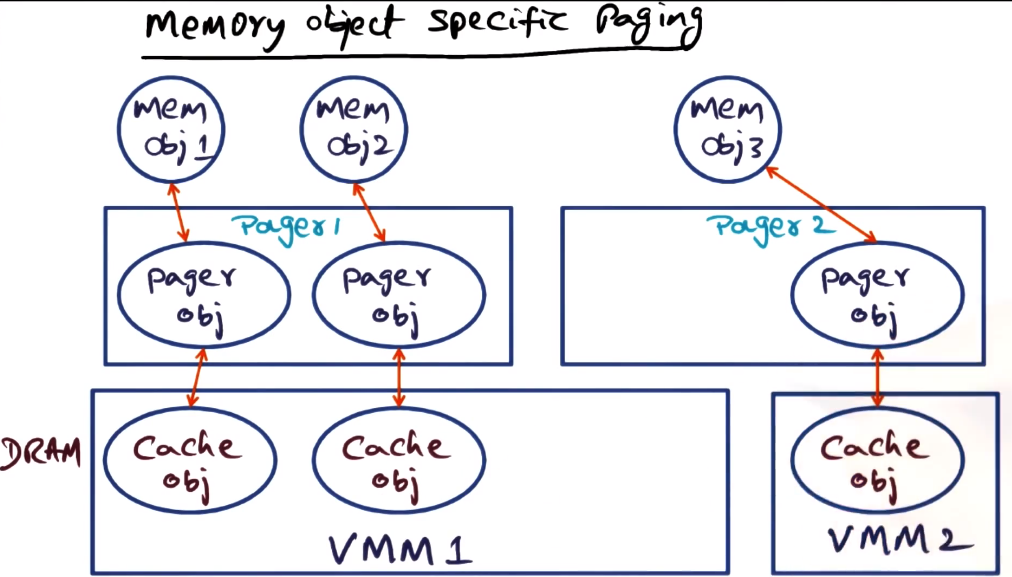 Memory object specific Paging
mem
obj 1
mem
obj2
mem
obj3
Pager 1
Pager 2
pager
obj
pager
obj
pager
obj
DRAM
Cache
obj
Cache
obj
Cache
obj
VMM 1
VMM 2